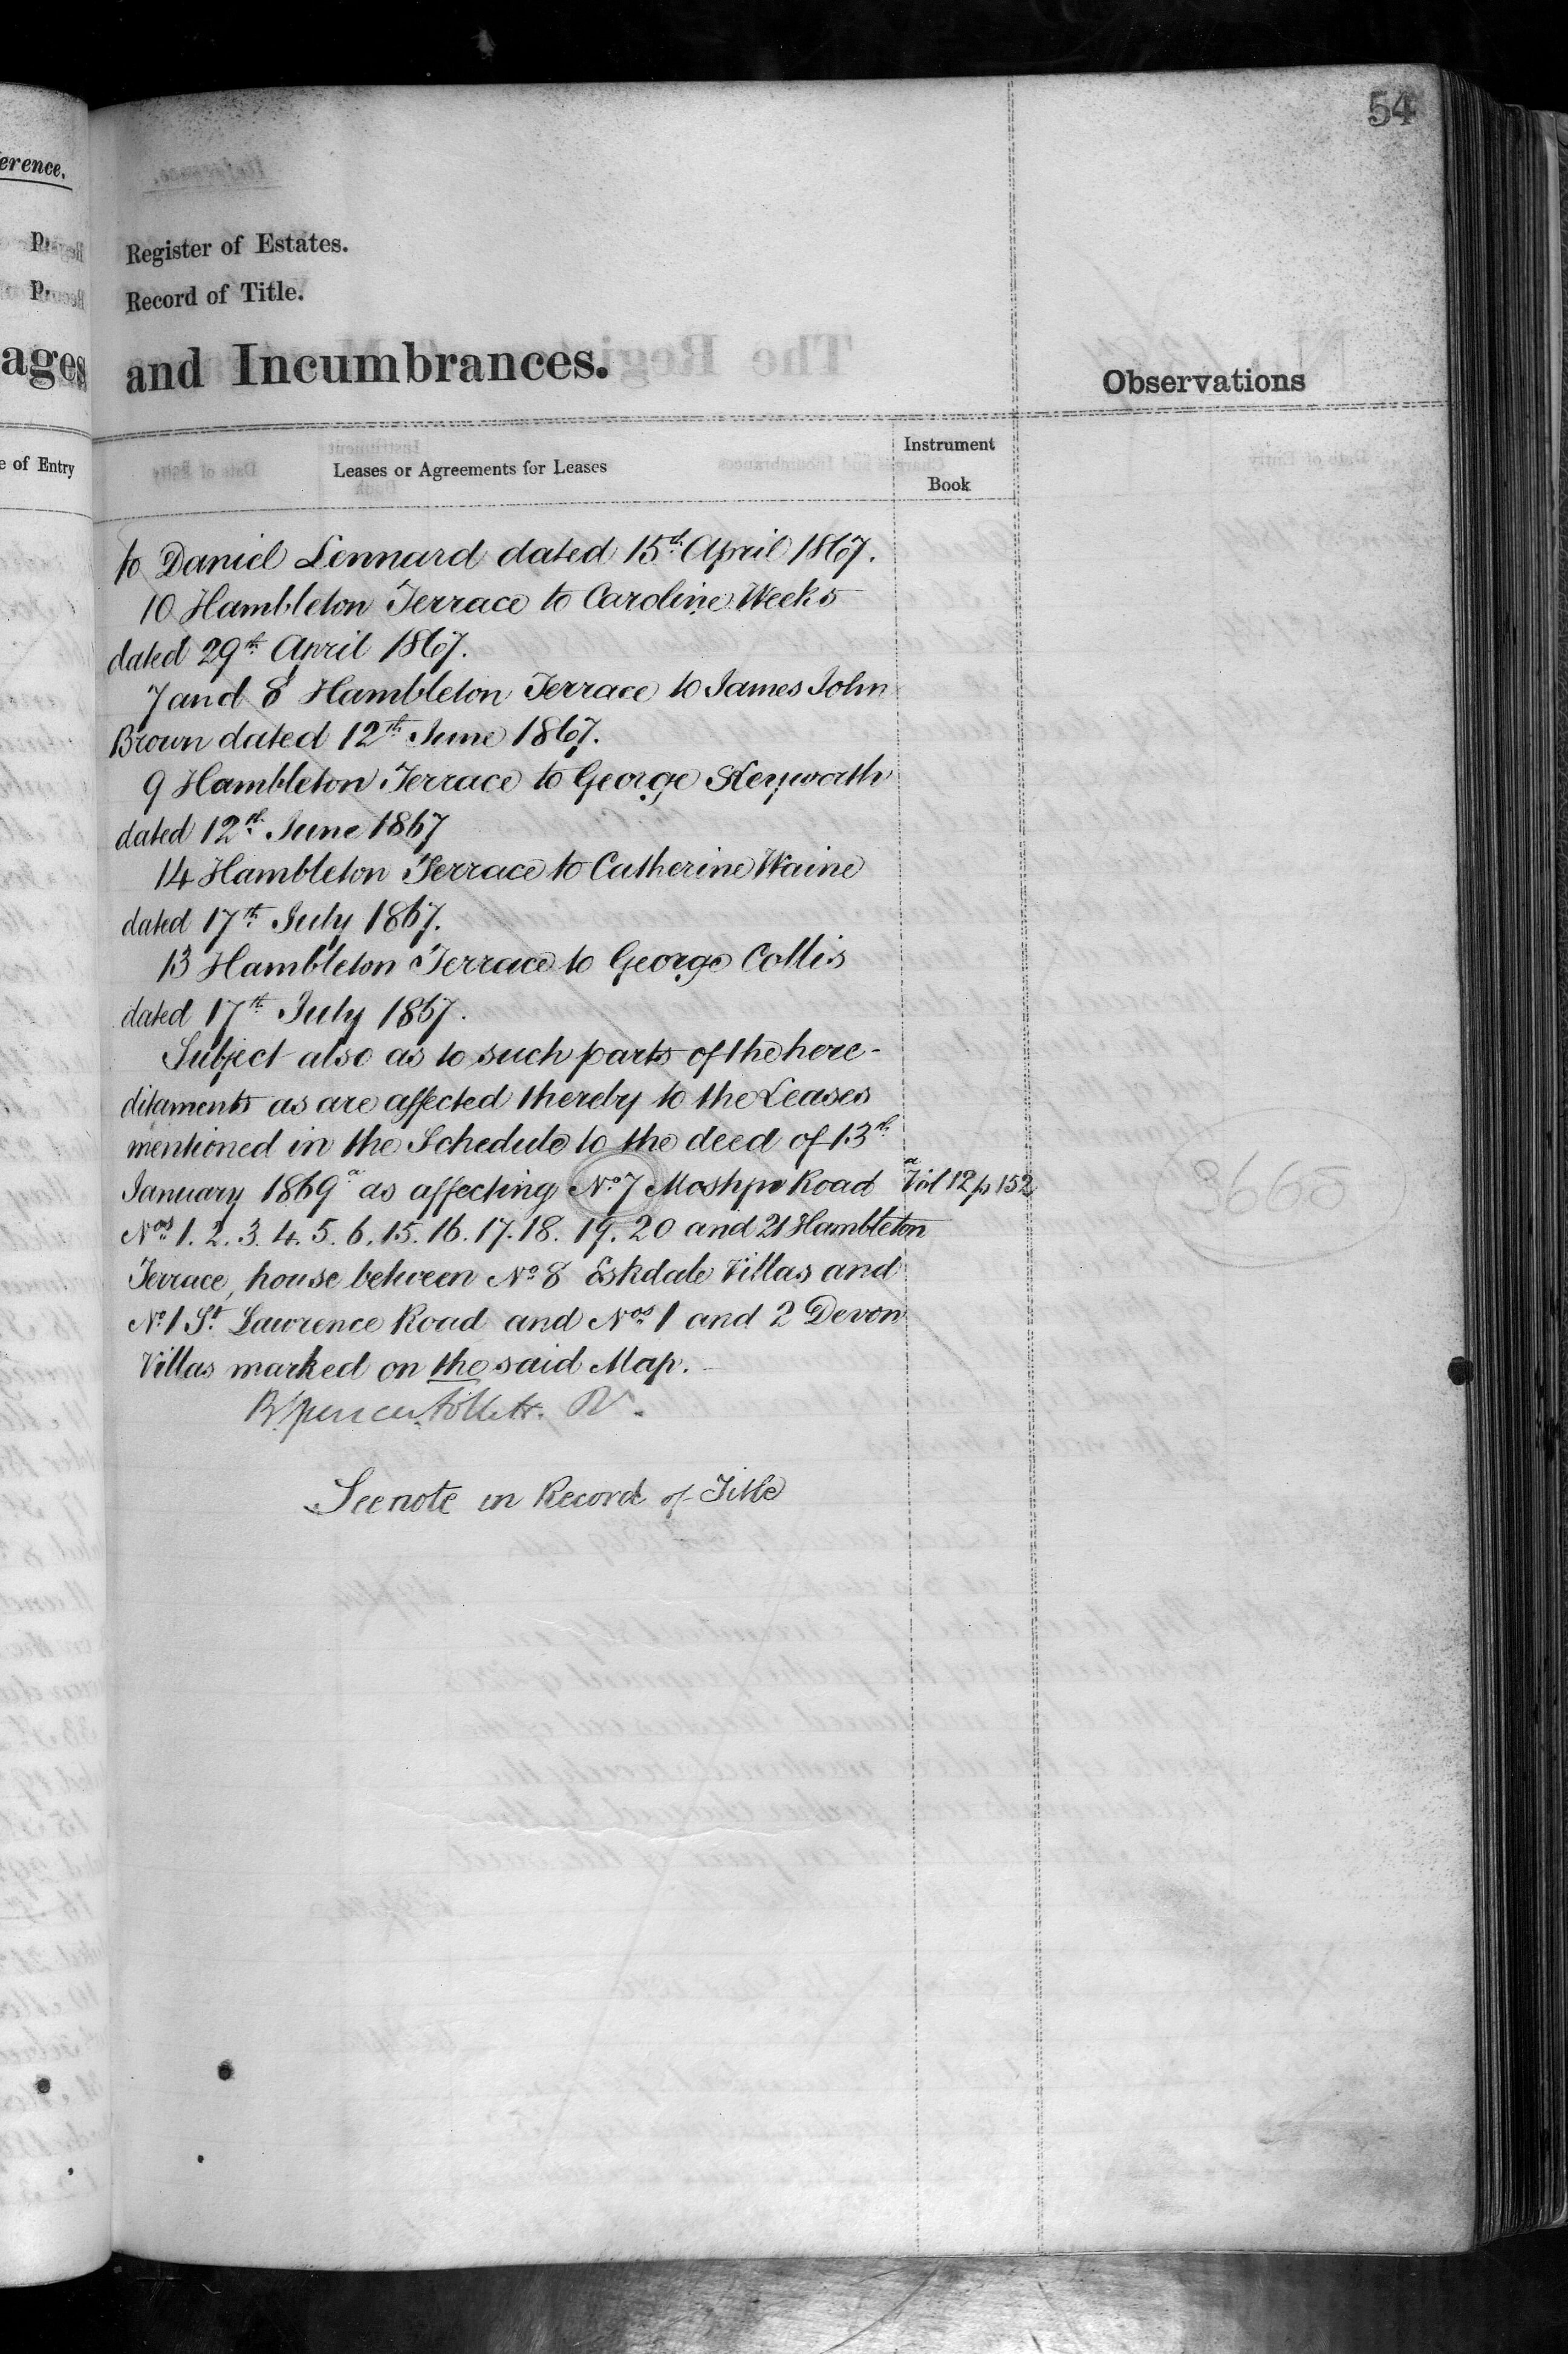 54
Register of Estates.
Record of Title.
and Incumbrances.
Observations
Leases or Agreements for Leases
Instrument
Book
to Daniel Lennard dated 15th April 1867.
10 Hambleton Terrace to Caroline Weeks
dated 29th April 1867.
7 and 8 Hambleton Terrace to James John
Brown dated 12th June 1867.
9 Hambleton Terrace to George Kenworth
dated 12th June 1867
14 Hambleton Terrace to Catherine Waine
dated 17th July 1867.
13 Hambleton Terrace to George Collis
dated 17th July 1867.
Subject also as to such parts of the here-
ditaments as are affected thereby to the Leases
mentioned in the Schedule to the deed of 13th
January 1869 a as affecting No. 7 Road a Vol 12 p 152
Nos. 1. 2. 3. 4. 5. 6. 15. 16. 17. 18. 19. 20 and 21 Hambleton
Terrace, house between No. 8 Eskdale Villas and
No. 1 St. Lawrence Road and Nos. 1 and 2 Devon
Villas marked on the said Map.
See note in Record of Title
3665
erence.
P.
P.
ages
e of Entry